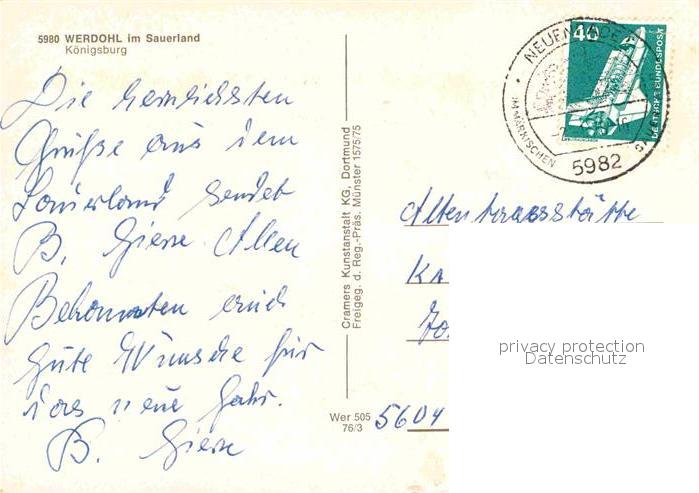 5980 WERDOHL im Sauerland
Königsburg
Die herrlichsten
Grüße aus dem
Sauerland sendet
B. Giese Allen
Bekannten auch
gute Wünsche für
das neue Jahr.
B. Giese
Cramers Kunstanstalt KG, Dortmund
Freigeg. d. Reg.-Präs. Münster 1575/75
Wer 505
76/3
40
DEUTSCHE BUNDESPOST
NEUENRADE
IM MÄRKISCHEN
5982
Altentagesstätte
KA
5604
privacy protection
Datenschutz